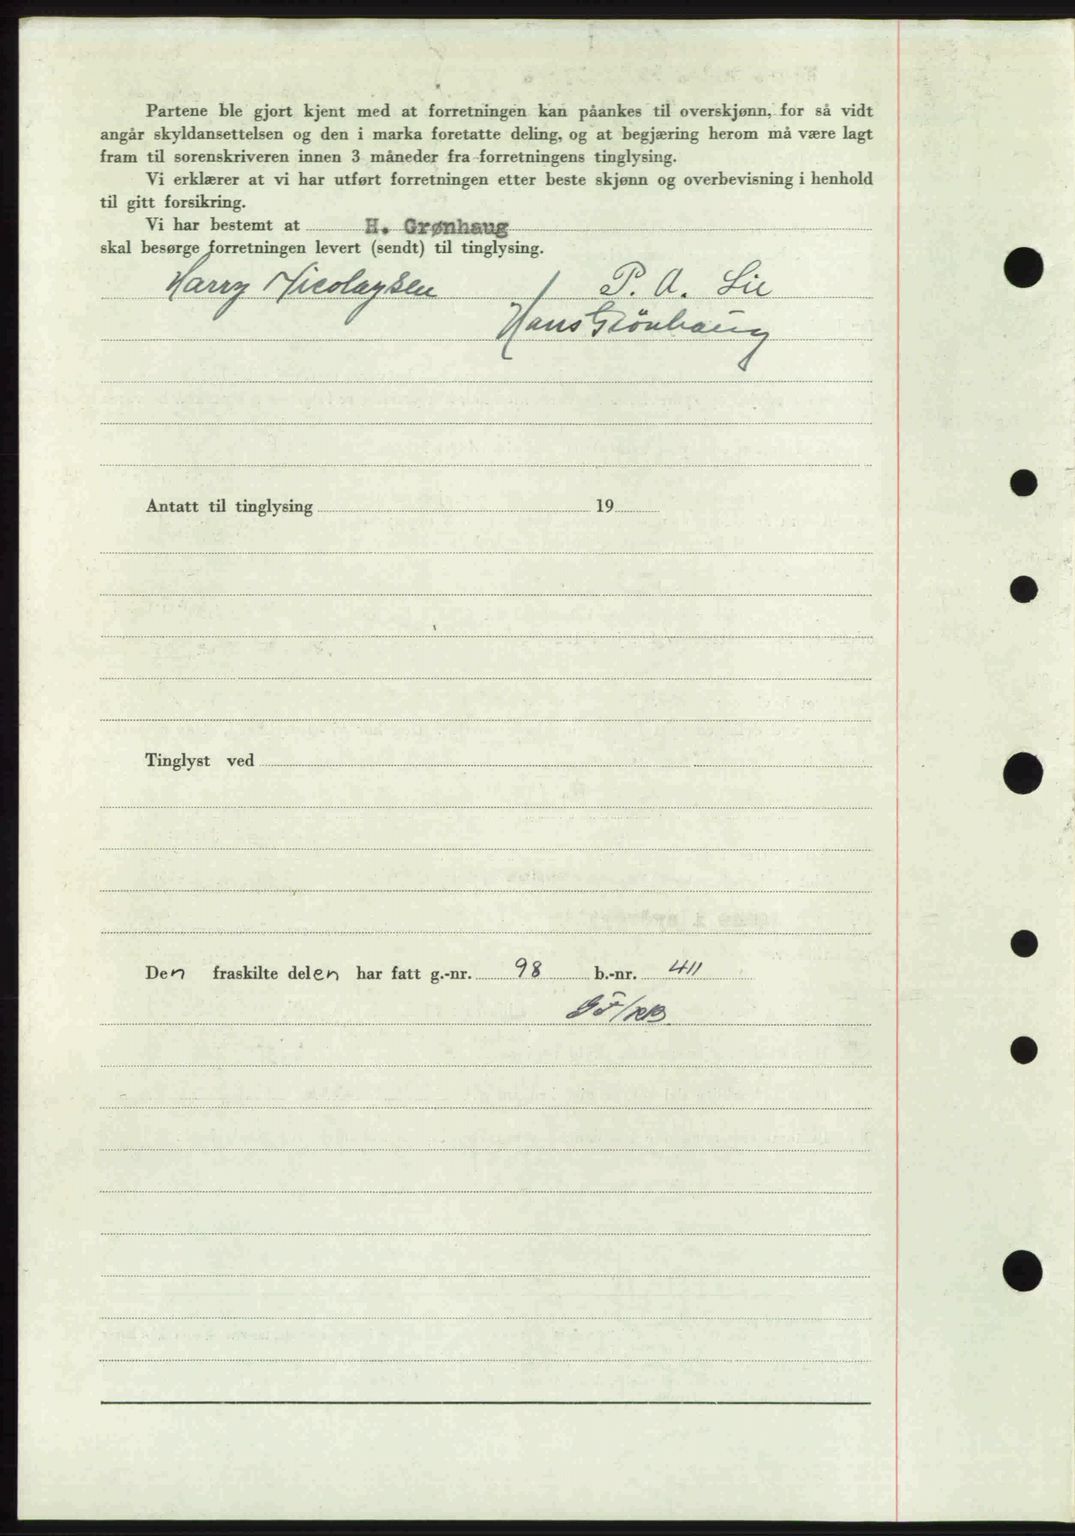 Partene ble gjort kjent med at forretningen kan påankes til overskjønn, for så vidt
angår skyldansettelsen og den i marka foretatte deling, og at begjæring herom må være lagt
fram til sorenskriveren innen 3 måneder fra forretningens tinglysing.
Vi erklærer at vi har utført forretningen etter beste skjønn og overbevisning i henhold
til gitt forsikring.
Vi har bestemt at H. Grønhaug
skal besørge forretningen levert (sendt) til tinglysing.
Harry Nicolaysen P. A. Lie
Hans Grönhaug
Antatt til tinglysing 19
Tinglyst ved
Den fraskilte delen har fatt g.-nr. 98 b.-nr. 411